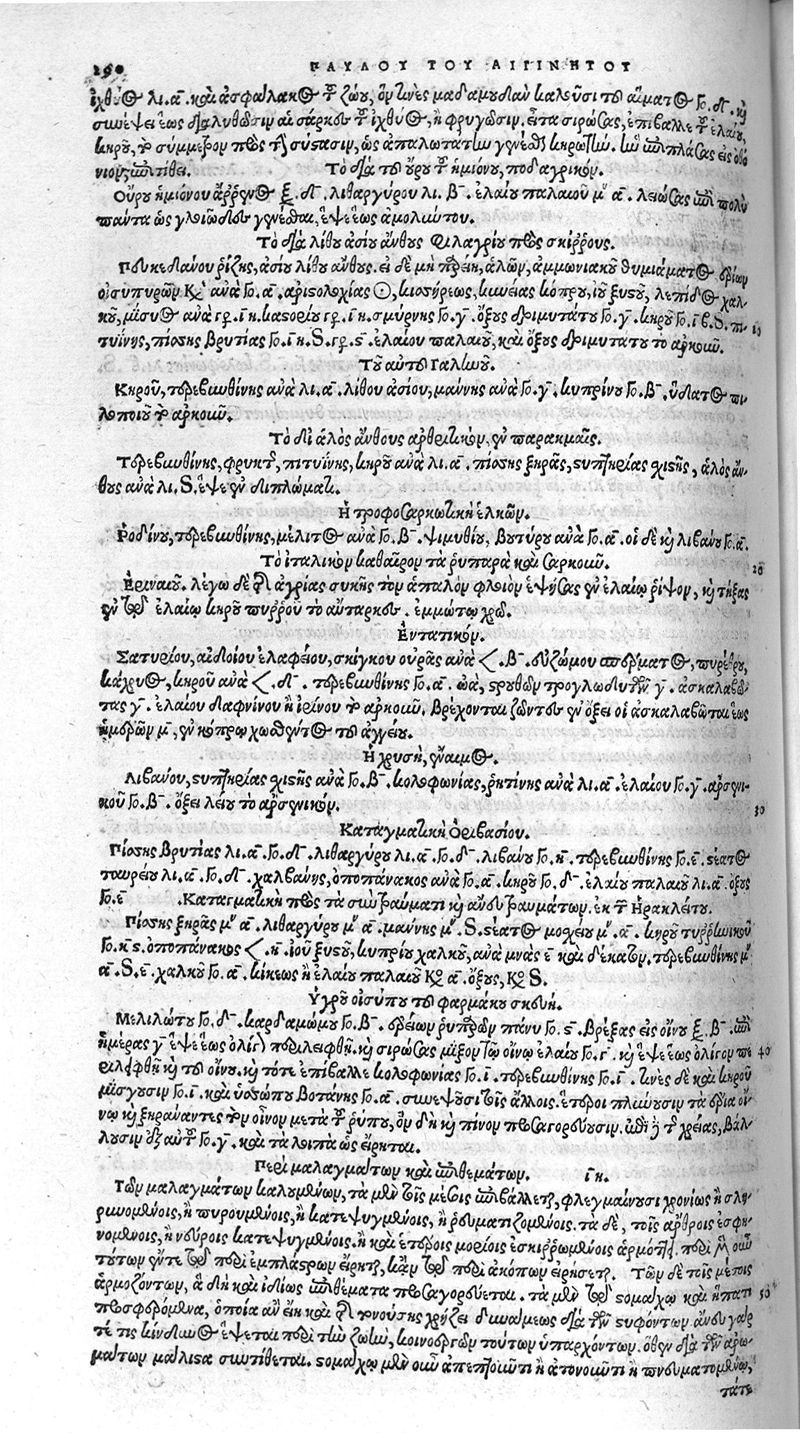 290 ΠΑΥΛΟΥ ΤΟΥ ΑΙΓΙΝΗΤΟΥ
λι. α. καὶ ἀσφάλακος τοῦ ζώου, ὅν τινες καλοῦσι τοῦ αἵματος γο. δ. καὶ
συνέψει ἕως διαλυθῶσιν αἱ σάρκες τοῦ ἰχθύος, ἢ φρυγῶσιν, εἶτα σειρώσας, ἐπίβαλλε τοῦ ἐλαίου,
κηροῦ, τὸ σύμμετρον πρὸς τὴν σύστασιν, ὡς ἁπαλωτάτην γενέσθαι κηρωτὴν. ἣν ἐμπλάσας εἰς ὀθό
νιον, ἐπιτίθει. Τὸ διὰ τοῦ οὔρου τοῦ ἡμιόνου, ποδαγρικόν.
Οὔρου ἡμιόνου ἄρρενος ξ. δ. λιθαργύρου λι. β. ἐλαίου παλαιοῦ μ. α. λειώσας ἐπὶ πολὺ
πάντα ὡς γλοιῶδες γενέσθαι, ἕψε ἕως ἀμολύντου.
Τὸ διὰ λίθου ἀσίου ἄνθους Φιλαγρίου πρὸς σκίρρους.
Πευκεδάνου ῥίζης, ἀσίου λίθου ἄνθους. εἰ δὲ μὴ παρείη, ἁλῶν, ἀμμωνιακοῦ θυμιάματος
ἀνὰ γο. α. ἀριστολοχίας κισήρεως, κυνείας κόπρου, ἰοῦ ξυστοῦ, λεπίδος χαλ
κοῦ, μίσυος ἀνὰ γρ. ιη. καστορίου γρ. ιη. σμύρνης γο. γ. ὄξους δριμυτάτου γο. γ. κηροῦ πι
τυΐνης, πίσσης βρυτίας ἐλαίου παλαιοῦ, καὶ ὄξους δριμυτάτου τὸ ἀρκοῦν.
Τοῦ αὐτοῦ Γαληνοῦ.
Κηροῦ, τερεβινθίνης ἀνὰ λι. α. λίθου ἀσίου, μάννης ἀνὰ γο. γ. κυπρίνου γο. β. ὕδατος πι
λοποιοῦ τὸ ἀρκοῦν.
Τὸ δι' ἁλὸς ἄνθους ἀρθριτικὸν, ἐν παρακμαῖς.
Τερεβινθίνης, φρυκτῆς, πιτυΐνης, κηροῦ ἀνὰ λι. α. πίσσης ξηρᾶς, στυπτηρίας σχιστῆς, ἁλὸς ἄν
θους ἀνὰ λι. S. ἕψε ἐν διπλώματι.
Ἡ τροφοσαρκωτικὴ ἑλκῶν.
Ῥοδίνου, τερεβινθίνης, μέλιτος ἀνὰ γο. β. ψιμυθίου, βουτύρου ἀνὰ γο. α. οἱ δὲ καὶ λιβάνου γο. α.
Τὸ ἰταλικὸν καθαῖρον τὰ ῥυπαρὰ καὶ σαρκοῦν. 20
Ἐρινεοῦ. λέγω δὲ τῆς ἀγρίας συκῆς τὸν ἁπαλὸν φλοιὸν ἑψήσας ἐν ἐλαίῳ ῥίψον, καὶ τήξας
ἐν τῷ ἐλαίῳ κηροῦ πυρροῦ τὸ αὔταρκες. ἐμμώτῳ χρῶ.
Ἐντατικόν.
Σατυρίου, αἰδοίου ἐλαφείου, σκίγκου οὐρᾶς ἀνὰ <. β. εὐζώμου σπέρματος, πυρέθρου,
κάχρυος, κηροῦ ἀνὰ <. δ. τερεβινθίνης γο. α. ὠὰ, στρουθῶν τρωγλοδυτῶν γ. ἀσκαλαβώ
τας γ. ἐλαίου δαφνίνου ἢ ἰρίνου τὸ ἀρκοῦν. βρέχονται ζῶντες ἐν ὄξει οἱ ἀσκαλαβῶται ἕως
ἡμερῶν μ, ἐν κόπρῳ χωσθέντος τοῦ ἀγγείου.
Ἡ χρυσῆ, ἔναιμος.
Λιβάνου, στυπτηρίας σχιστῆς ἀνὰ γο. β. κολοφωνίας, ῥητίνης ἀνὰ λι. α. ἐλαίου γο. γ. ἀρσενι
κοῦ γο. β. ὄξει λείου τὸ ἀρσενικόν. 30
Καταγματικὴ Ὀρειβασίου.
Πίσσης βρυτίας λι. α. γο. δ. λιθαργύρου λι. α. γο. δ. λιβάνου γο. η. τερεβινθίνης γο. ε. στέατος
ταυρείου λι. α. γο. δ. χαλβάνης, ὀποπάνακος ἀνὰ γο. α. κηροῦ γο. δ. ἐλαίου παλαιοῦ λι. α. ὄξους
γο. ε. Καταγματικὴ πρὸς τὰ σὺν τραύματι καὶ ἄνευ τραυμάτων. ἐκ τοῦ Ἡρακλείτου.
Πίσσης ξηρᾶς μ. α. λιθαργύρου μ. α. μάννης μ. S. στέατος μοσχείου μ. α. κηροῦ τυρρηνικοῦ
ὀποπάνακος <. η. ἰοῦ ξυστοῦ, κυπρίου χαλκοῦ, ἀνὰ μνᾶς ε. καὶ δέκατον, τερεβινθίνης μ.
α. S. ε. χαλκοῦ γο. α. κίκεως ἢ ἐλαίου παλαιοῦ α. ὄξους, S.
Ὑγροῦ οἰσύπου τοῦ φαρμάκου σκευή.
Μελιλώτου γο. δ. καρδαμώμου γο. β. ἐρίων ῥυπαρῶν πάνυ γο. ς. βρέξας εἰς οἴνου ξ. β. ἐπὶ
ἡμέρας γ. ἕψε ἕως ὀλίγον περιλειφθῇ. καὶ σειρώσας μίξον τῷ οἴνῳ ἐλαίου γο. γ. καὶ ἕψε ἕως ὀλίγον πε 40
ριλειφθῇ καὶ τοῦ οἴνου. καὶ τότε ἐπίβαλλε κολοφωνίας γο. ι. τερεβινθίνης γο. ι. τινὲς δὲ καὶ κηροῦ
μίσγουσιν γο. ι. καὶ ὑσσώπου βοτάνης γο. α. συνεψοῦσι τοῖς ἄλλοις. ἕτεροι πλύνουσιν τὰ ἔρια οἴ
νῳ καὶ ξηράναντες τὸν οἶνον μετὰ τοῦ ῥύπου, ὃν δὴ καὶ πίνον προσαγορεύουσιν. ἐπὶ τῆς χρείας, βάλ
λουσιν ἐξ αὐτοῦ γο. γ. καὶ τὰ λοιπὰ ὡς εἴρηται.
Περὶ μαλαγμάτων καὶ ἐπιθεμάτων. ιη.
Τῶν μαλαγμάτων καλουμένων, τὰ μὲν τοῖς μέσοις ἐπιβάλλεται, φλεγμαίνουσι χρονίως ἢ σκλη
ρυνομένοις, ἢ πυρουμένοις, ἢ κατεψυγμένοις, ἢ ῥευματιζομένοις. τὰ δὲ, τοῖς ἄρθροις ἐσφη
νομένοις, ἢ νεύροις κατεψυγμένοις. ἢ καὶ ἑτέροις μορίοις ἐσκιρρωμένοις ἁρμόττει. περὶ μὲν οὖν
τούτων ἔν τε τῷ περὶ ἐμπλάστρων εἴρηται, κἀν τῷ περὶ ἀκόπων εἰρήσεται. Τῶν δὲ τοῖς μέσοις
ἁρμοζόντων, ἃ δὴ καὶ ἰδίως ἐπιθέματα προσαγορεύεται. τὰ μὲν τῷ στομάχῳ καὶ ἥπατι 50
προσφερόμενα, ὁποία ἂν εἴη καὶ τῆς τονούσης χρῄζει δυνάμεως διὰ τῶν στυφόντων. ἄνευ γὰρ
τέ τις κίνδυνος ἕψεται περὶ τὴν ζωὴν, κοινοεργῶν τούτων ὑπαρχόντων. ὅθεν διὰ τῶν ἀρω
μάτων μάλιστα συντίθεται. στομάχῳ μὲν οὖν ἀπεπτοῦντι ἢ ἀτονοῦντι ἢ πνευματουμένῳ,